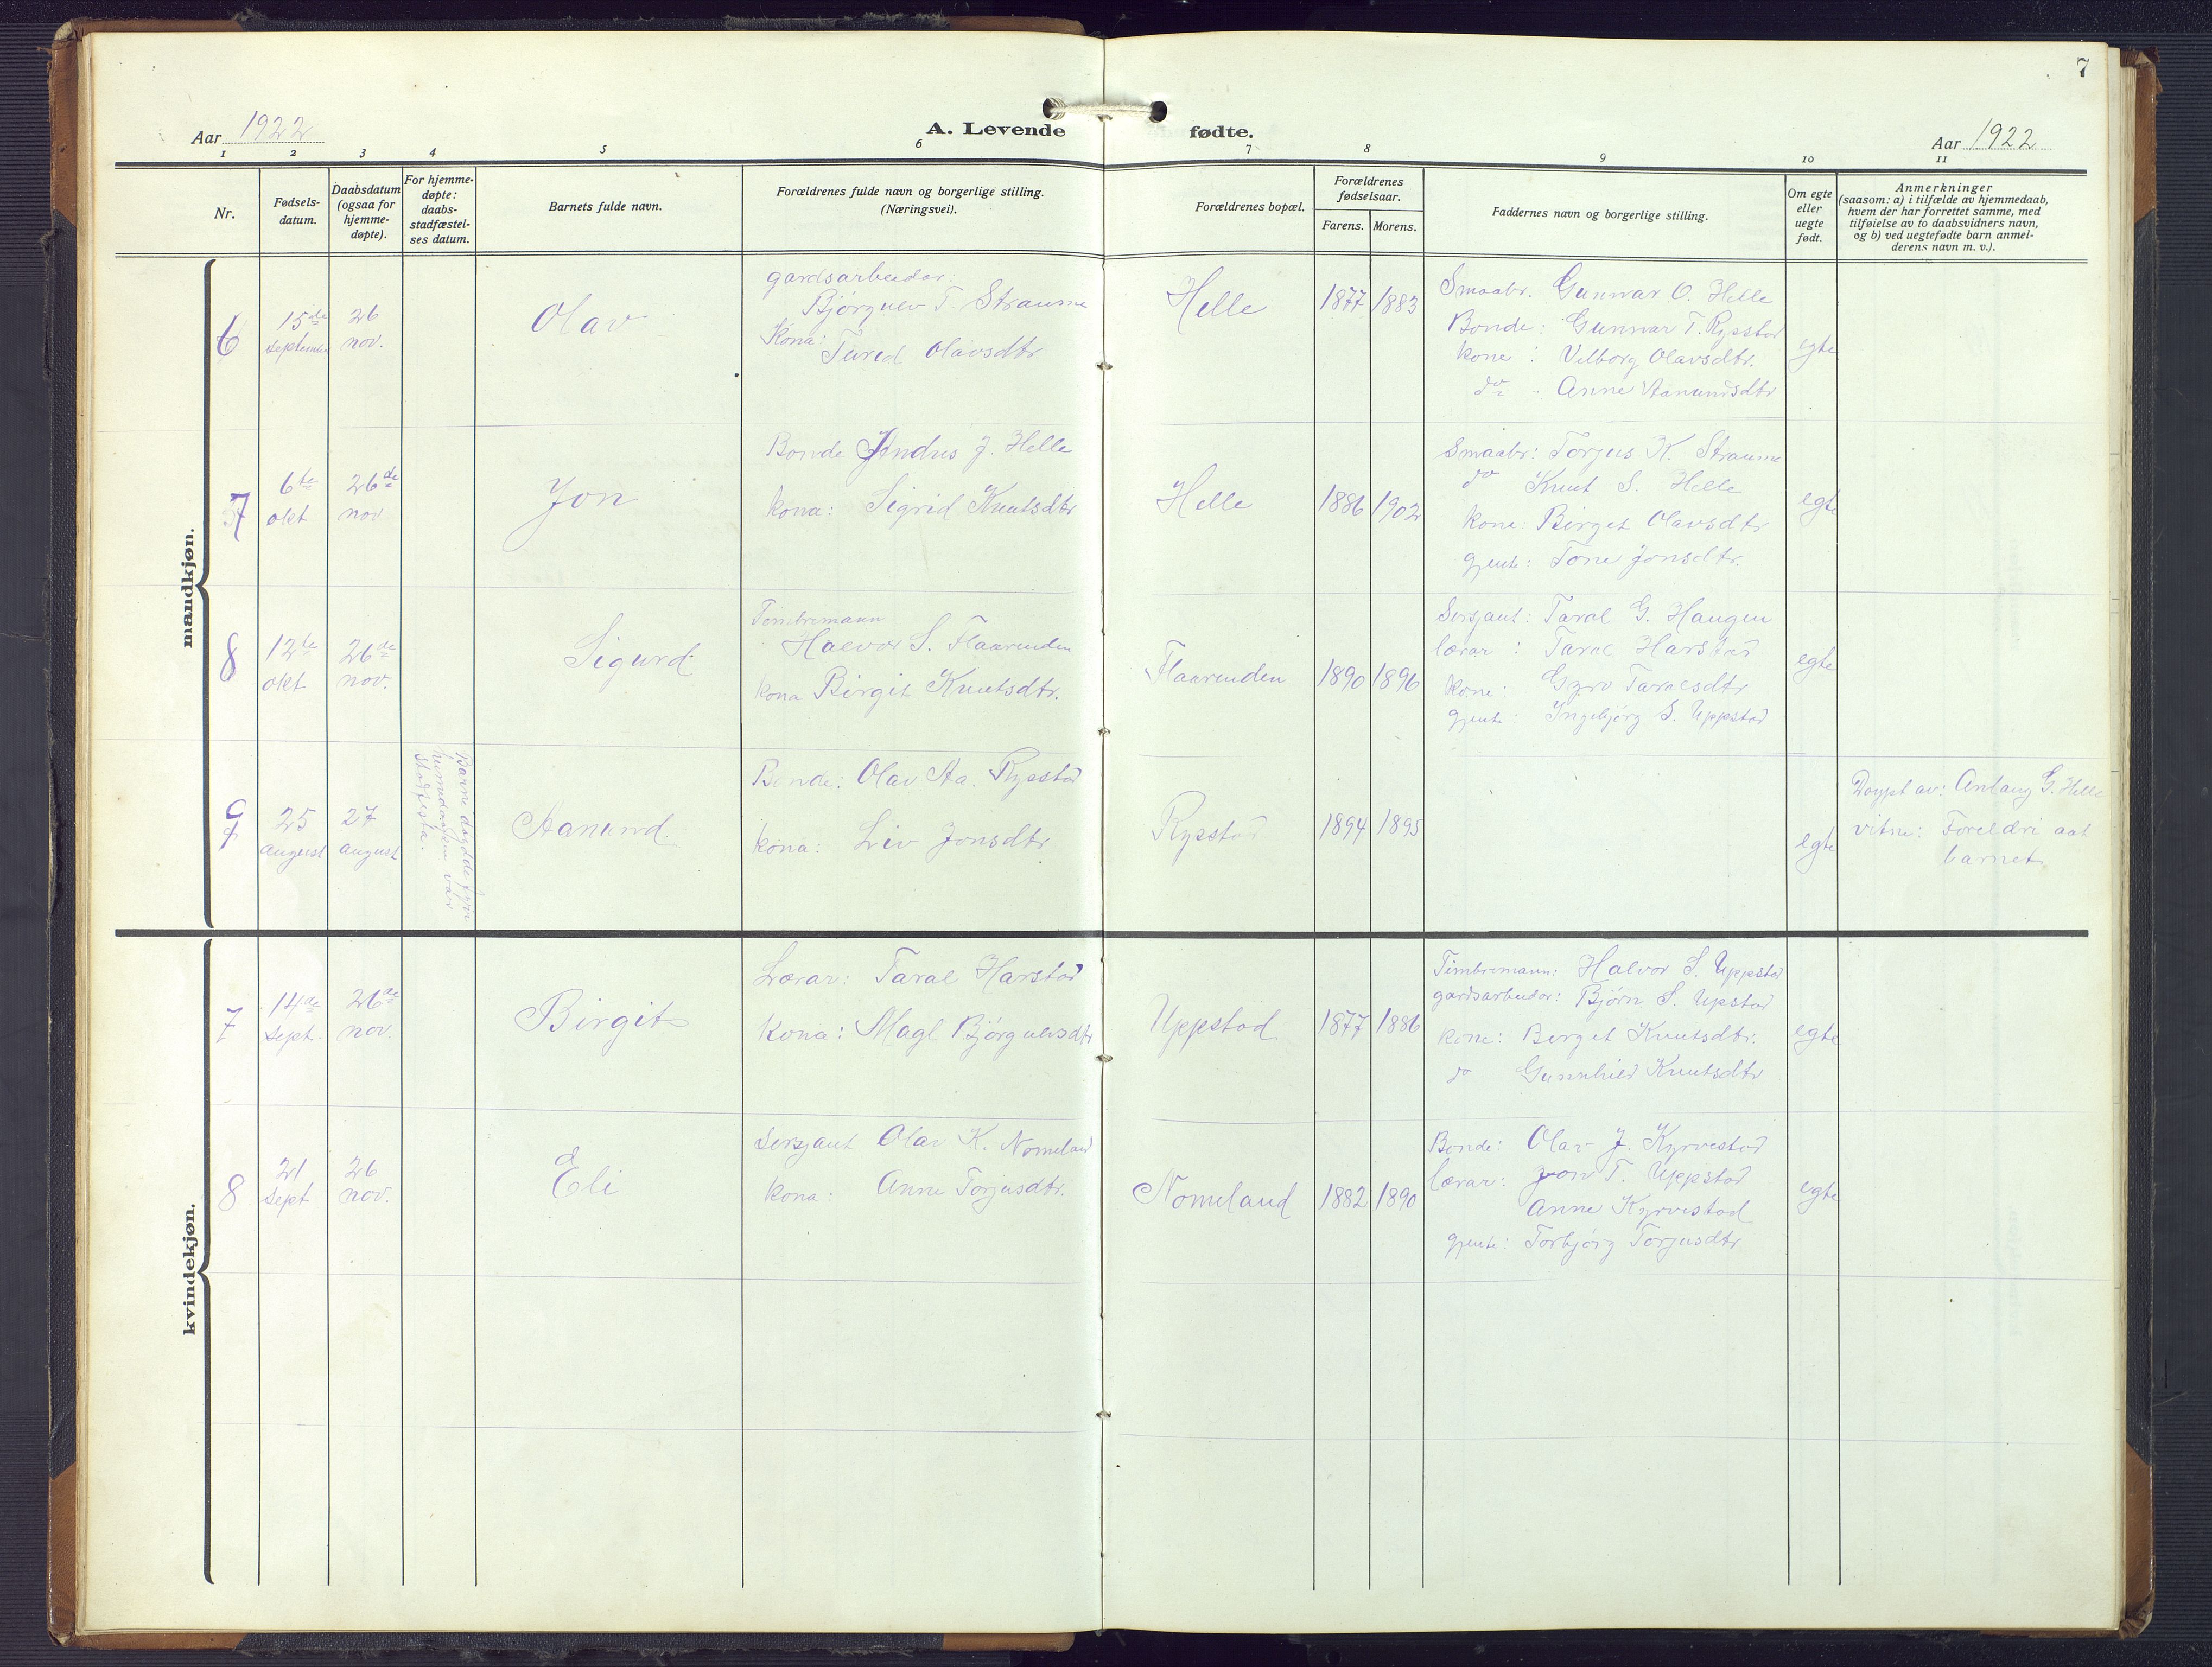 7
Aar 1922
A. Levende fødte.
Aar 1922
1 2 3 4 5 6 7 8 9 10 11
Nr.
Fødsels-
datum.
Daabsdatum
(ogsaa for
hjemme-
døpte).
For hjemme-
døpte:
daabs-
stadfæstel-
ses datum.
Barnets fulde navn.
Forældrenes fulde navn og borgerlige stilling.
(Næringsvei).
Forældrenes bopæl.
Forældrenes
fødselsaar.
Farens. Morens.
Faddernes navn og borgerlige stilling.
Om egte
eller
uegte
født.
Anmerkninger
(saasom: a) i tilfælde av hjemmedaab,
hvem der har forrettet samme, med
tilføielse av to daabsvidners navn,
og b) ved uegtefødte barn anmel-
derens navn m. v.).
mandkjøn.
6
15de
september
26
nov.
Olav
gardsarbeidar:
Bjørgulv T. Straume
Kona:
Turid Olavsdtr.
Helle
1877 1883
Smaabr. Gunnar O. Helle
Bonde: Gunnar T. Rysstad
kone: Velborg Olavsdtr.
do Anne Aanundsdtr
egte
7
6te
okt
26de
nov
Jon
Bonde Andris J. Helle
kona: Sigrid Knutsdtr
Helle
1886 1902
Smaabr: Torjus K. Straume
do Knut S. Helle
kone. Birget Olavsdtr
gjente: Tone Jonsdtr.
egte
8
12te
okt
26de
nov.
Sigurd
Tømbremann
Halvor S. Flaarenden
kona Birgit Knutsdtr.
Flaarenden
1890 1896
Sersjant: Taral G. Haugen
lærar: Taral Harstad
kone: Gyro Taralsdtr
gjente: Ingebjørg S. Uppstad
egte
9
25
august
27
august
Barne døydde fyre
heimedaapen var
stadfesta.
Aanund
Bonde: Olav Aa. Rysstad
kona: Liv Jonsdtr
Rysstad
1894 1895
egte
Døypt av: Anlaug G. Helle
vitne: Foreldri aat
barnet.
kvindekjøn.
7
14de
sept.
26de
nov.
Birgit
Lærar: Taral Harstad
Kona: Magl Bjørgulvsdtr
Uppstad
1877 1886
Timbremann: Halvor S. Uppstad
gardsarbeidar: Bjørn S. Upstad
kone: Berget Knutsdtr.
do Gunnhild Knutsdtr
egte
8
21
sept
26
nov.
Eli
Sersjant Olav K. Nomeland
kona: Anne Torjusdtr.
Nomeland
1882 1890
Bonde: Olav J. Kyrvestad
lærar: Jon T. Uppstad
Anne Kyrvestad
gjente: Torbjørg Torjusdtr
egte